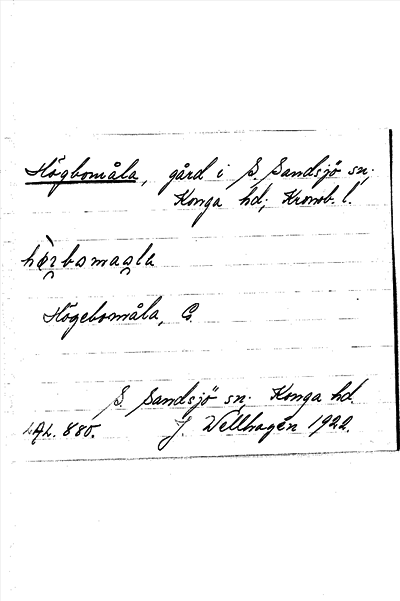 Högbomåla, gård i S. Sandsjö sn;
Konga hd; Kronob. l.
Högebomåla, G.
S. Sandsjö sn; Konga hd.
LAL. 880. J. Wellhagen 1922.